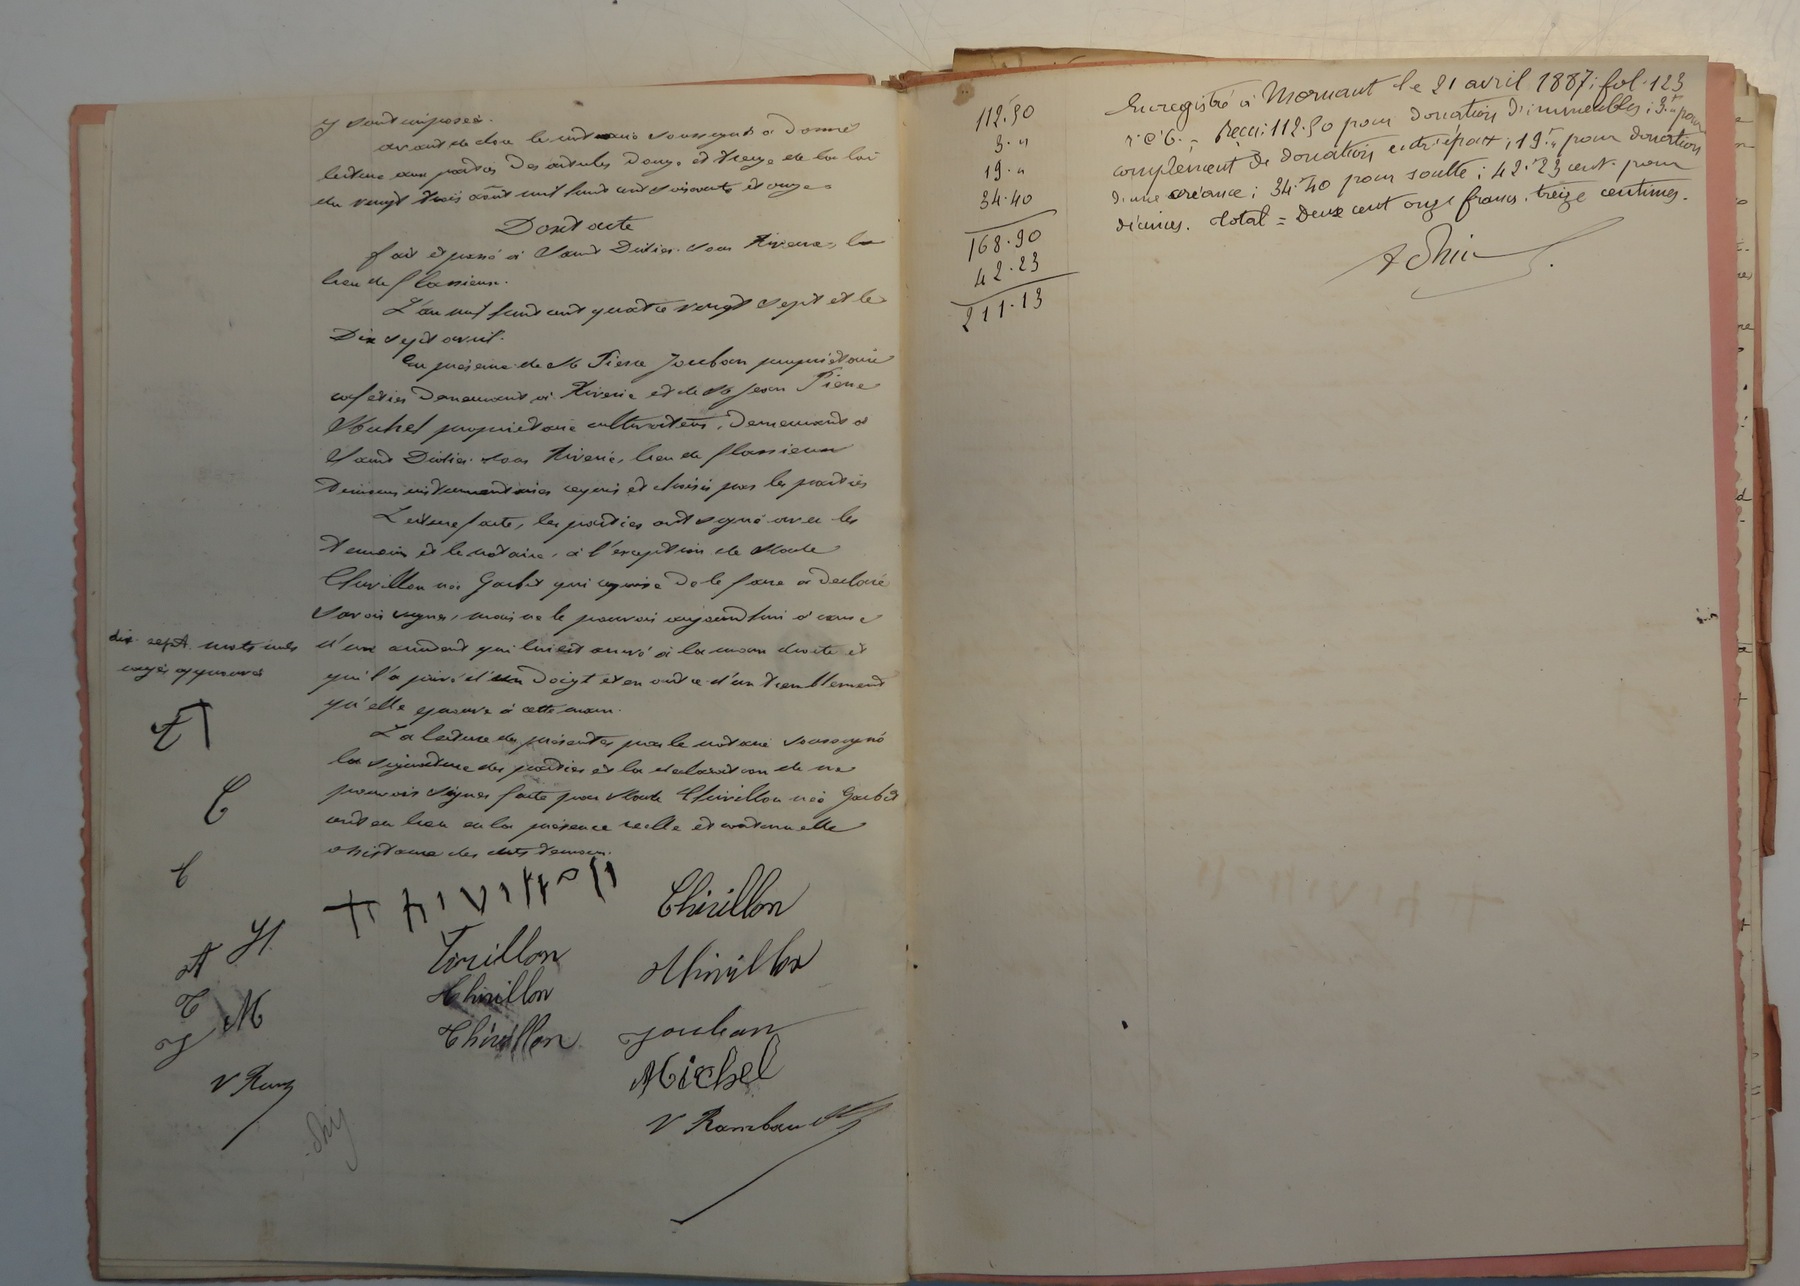 y sont imposés.
avant de clore le notaire soussigné a donné
lecture aux parties des articles douze et treize de la loi
du vingt trois août mil huit cent soixante et onze.
Dont acte
fait et passé à Saint Didier sous Riverie, la
lieu de flassieux.
L'an mil huit cent quatre vingt sept et le
Dix sept avril.
En présence de M Pierre Jouban propriétaire
cafetier demeurant à Riverie et de M Jean Pierre
Michel propriétaire cultivateur, demeurant à
Saint Didier sous Riverie, lieu de flassieux
témoins instrumentaires requis et choisis par les parties
Lecture faite, les parties ont signé avec les
témoins et le notaire, à l'exception de Made
Thivillon née Goubet qui requise de le faire a déclaré
savoir signer, mais ne le pouvoir aujourd'hui à cause
d'un accident qui lui est arrivé à la main droite et
qui l'a privé d'un doigt et en outre d'un tremblement
qu'elle éprouve à cette main.
La lecture des présentes par le notaire soussigné
la signature des parties et la déclaration de ne
pouvoir signer faite par Made Thivillon née Goubet
ont eu lieu en la présence réelle et continuelle
assistance des dits témoins.
dix sept mots nuls
rayés approuvés
T
T
T
M
V Ramb
Thivillon
Thivillon
Thivillon
Thivillon
Thivillon
Jouban
Michel
V Rambau
112.50
3 "
19 "
34.40
168.90
42.23
211.13
Enregistré à Mornant le 21 avril 1887, fol. 123
r° c 6. Reçu: 112.50 pour donation d'immeubles; 3 f " pour
complement de donation ; 19 f " pour donation
d'une créance; 34 f 40 pour soulte; 42 f 23 cent. pour
décimes. Total = Deux cent onze francs, treize centimes.